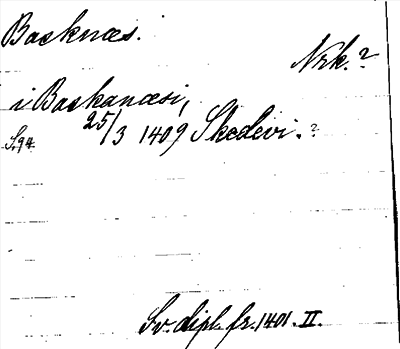 Basknæs.
Nrk.?
i Baskanæsi,
S.94. 25/3 1409 Skedevi.?
Sv. dipl. fr. 1401. II.